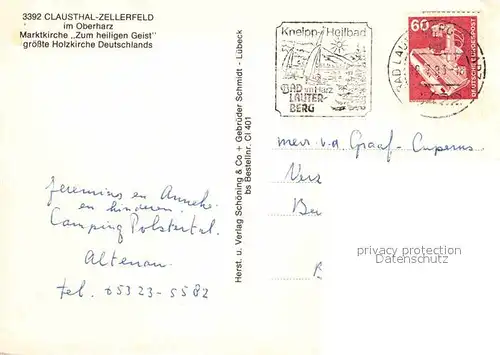 3392 CLAUSTHAL-ZELLERFELD
im Oberharz
Marktkirche „Zum heiligen Geist"
größte Holzkirche Deutschlands
Kneipp-Heilbad
BAD im Harz
LAUTER-
BERG
BAD LAU
60
DEUTSCHE BUNDESPOST
Herst. u. Verlag Schöning & Co + Gebrüder Schmidt - Lübeck
bs Bestellnr. Cl 401
mevr. v.d. Graaf-Cuperus
Verz
Be
Jeremias en Anneke
en kinderen
Camping Polstertal.
Altenau
tel. 05323-5582
privacy protection
Datenschutz